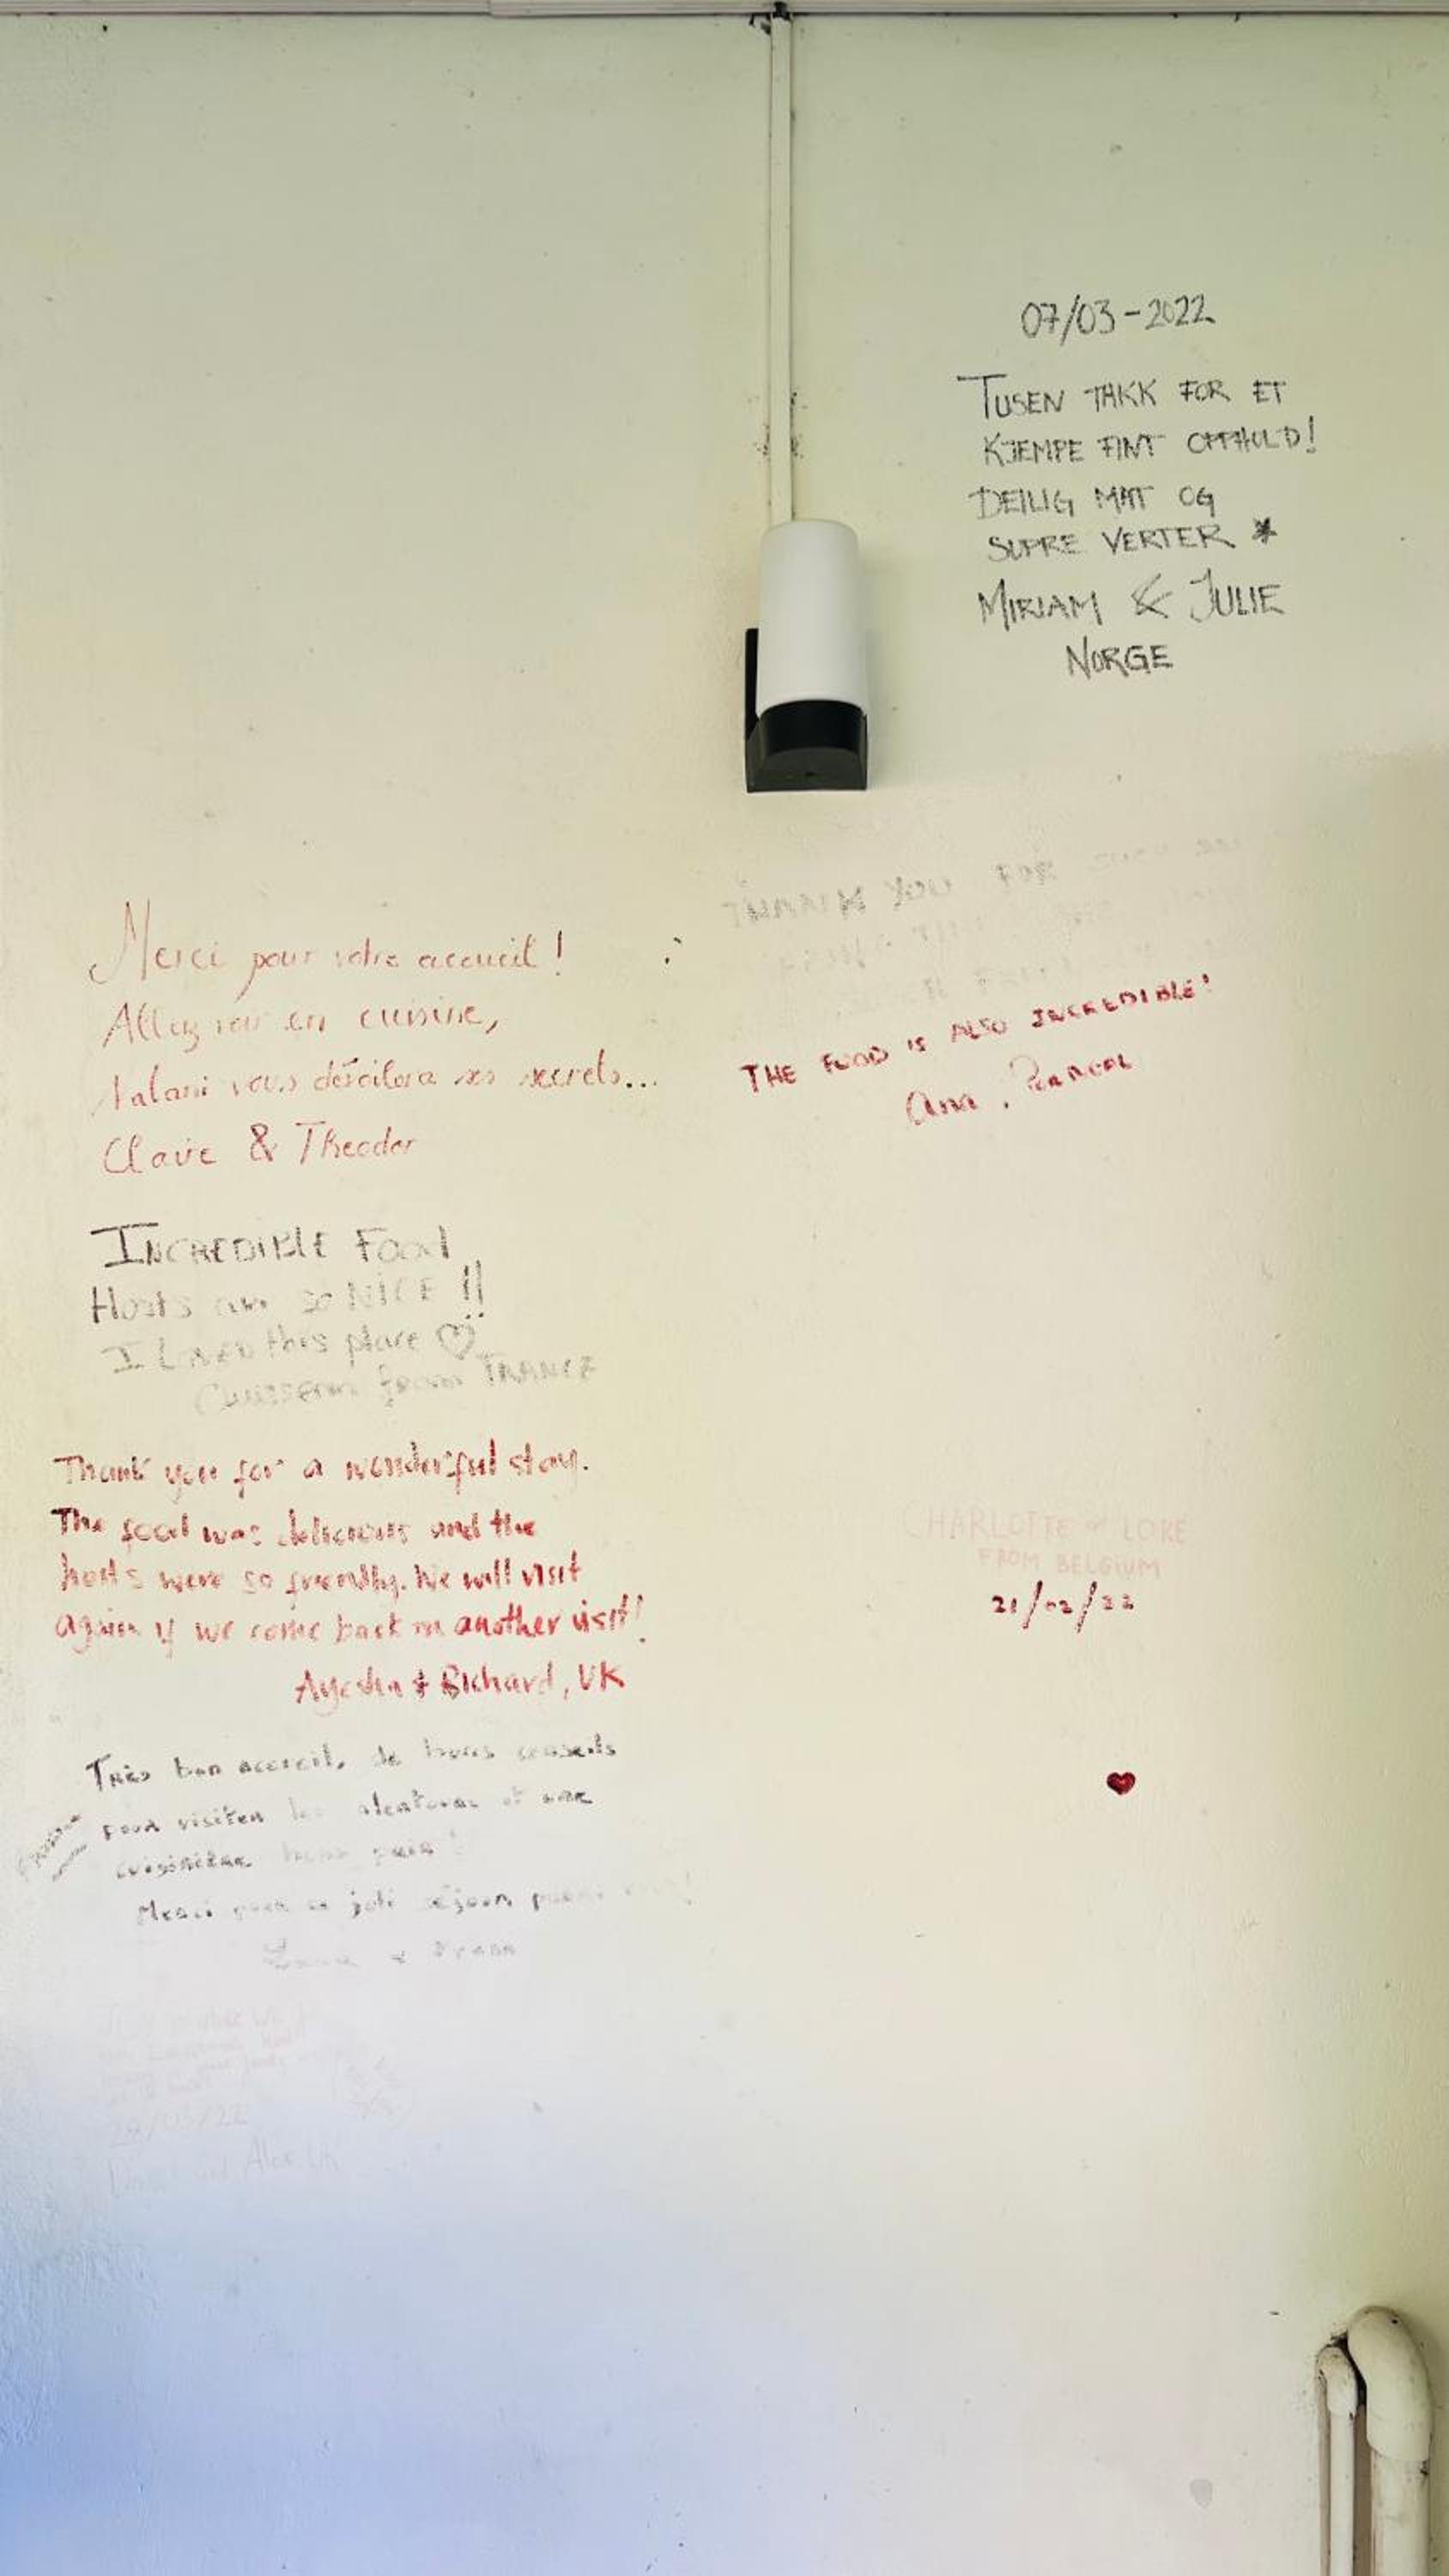 07/03-2022
TUSEN TAKK FOR ET
KJEMPE FINT OPPHOLD!
DEILIG MAT OG
SUPRE VERTER *
MIRIAM & JULIE
NORGE
THANK YOU FOR
THE FOOD IS ALSO INCREDIBLE!
Ana,
Merci pour votre accueil!
Allez voir en cuisine,
vous dévoilera ses secrets...
Claire & Theodor
INCREDIBLE FOOD
Hosts are so NICE !!
I LOVED this place ♡
from FRANCE
Thank you for a wonderful stay.
The food was delicious and the
hosts were so friendly. We will visit
again if we come back on another visit!
Ayesha & Richard, UK
Très bon accueil, de bons conseils
pour visiter les alentours et une
cuisinière hors pair!
Merci pour ce joli séjour
HARLOTTE & LORE
FROM BELGIUM
21/02/22
28/03/22
Alex UK